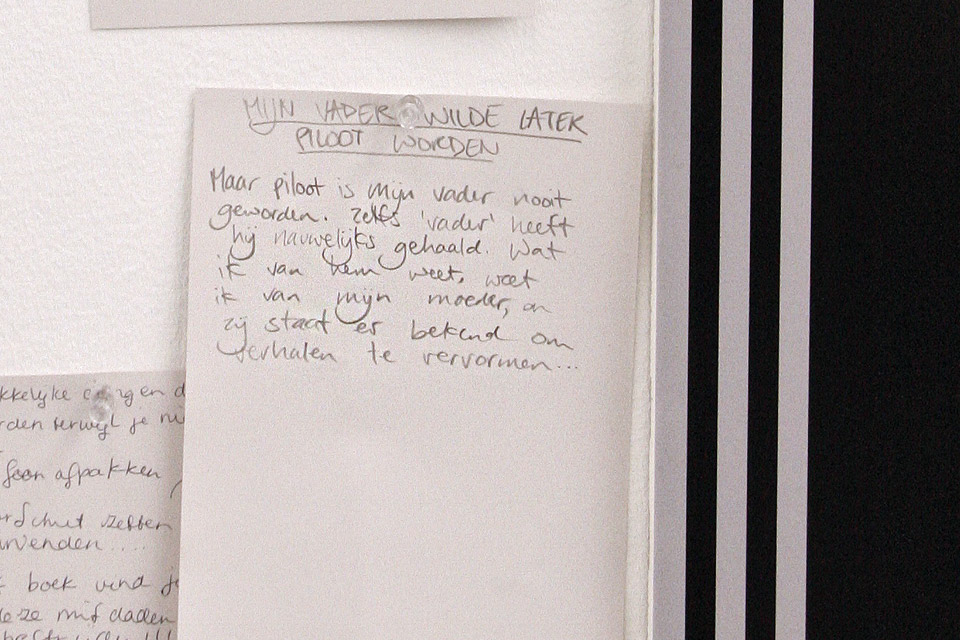 MIJN VADER WILDE LATER
PILOOT WORDEN
Maar piloot is mijn vader nooit
geworden. Zelfs 'vader' heeft
hij nauwelijks gehaald. Wat
ik van hem weet, weet
ik van mijn moeder, en
zij staat er bekend om
verhalen te vervormen...
kkelijke en d
rden terwijl je
afpakken
zetten
wenden....
boek vind je
deze misdaden